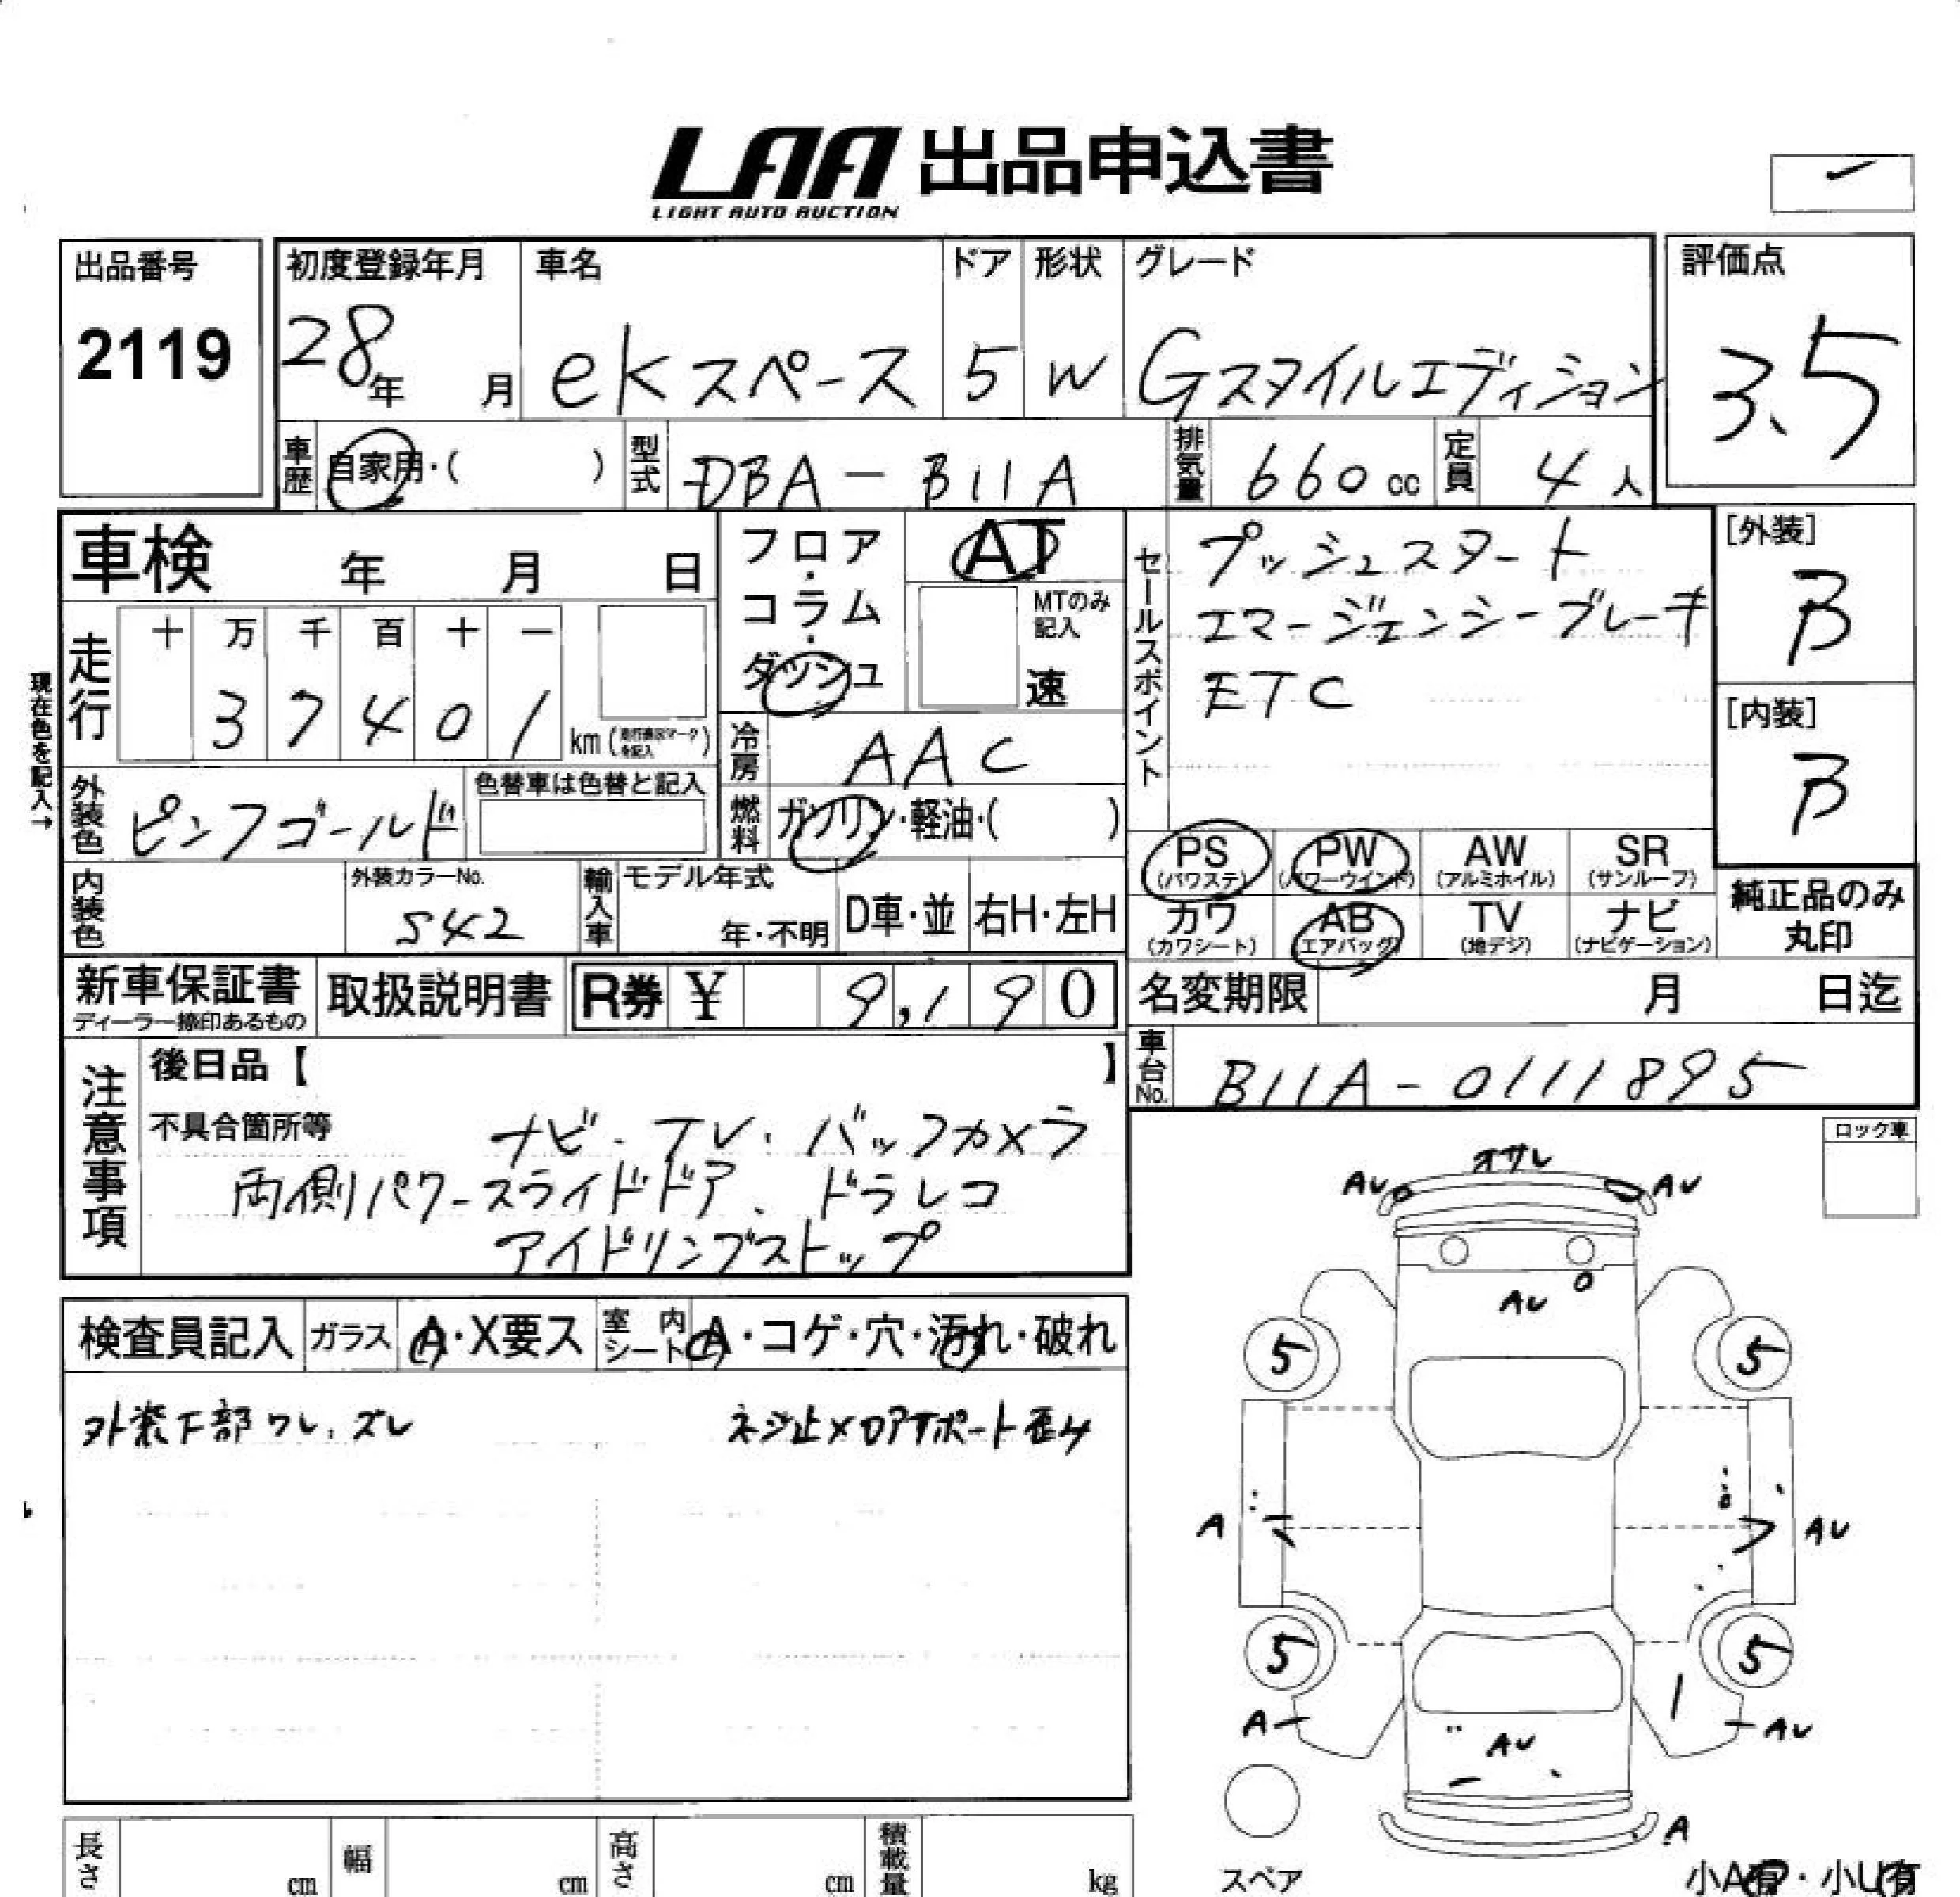 LAA 出品申込書
LIGHT AUTO AUCTION
出品番号
2119
初度登録年月
28年 月
車名
ekスペース
ドア
5
形状
W
グレード
Gスタイルエディション
評価点
3.5
車歴 自家用・( )
型式 DBA-B11A
排気量 660 cc
定員 4 人
車検 年 月 日
現在色を記入→
走行 十 万 千 百 十 一
3 7 4 0 1 km
フロア・コラム・ダッシュ
AT
MTのみ記入
速
冷房 AAC
燃料 ガソリン・軽油・( )
外装色 ピンクゴールド
色替車は色替と記入
内装色
外装カラーNo.
S42
輸入車
モデル年式
年・不明
D車・並
右H・左H
セールスポイント
プッシュスタート
エマージェンシーブレーキ
ETC
[外装]
B
[内装]
B
PS (パワステ)
PW (パワーウインド)
AW (アルミホイル)
SR (サンルーフ)
カワ (カワシート)
AB (エアバッグ)
TV (地デジ)
ナビ (ナビゲーション)
純正品のみ丸印
新車保証書
ディーラー捺印あるもの
取扱説明書
R券 ¥ 9,190
名変期限 月 日迄
車台No. B11A-0111895
注意事項
後日品【 】
不具合箇所等
ナビ・TV・バックカメラ
両側パワースライドドア、ドラレコ
アイドリングストップ
ロック車
検査員記入
ガラス A・X要ス
室内シート A・コゲ・穴・汚れ・破れ
外装下部ワレ、ズレ
ネジ止メロアサポート歪ミ
オサレ
AU AU
AU
5 5
A AU
5 5
A AU
AU
A
スペア
小A有・小U有
長さ cm
幅 cm
高さ cm
積載量 kg